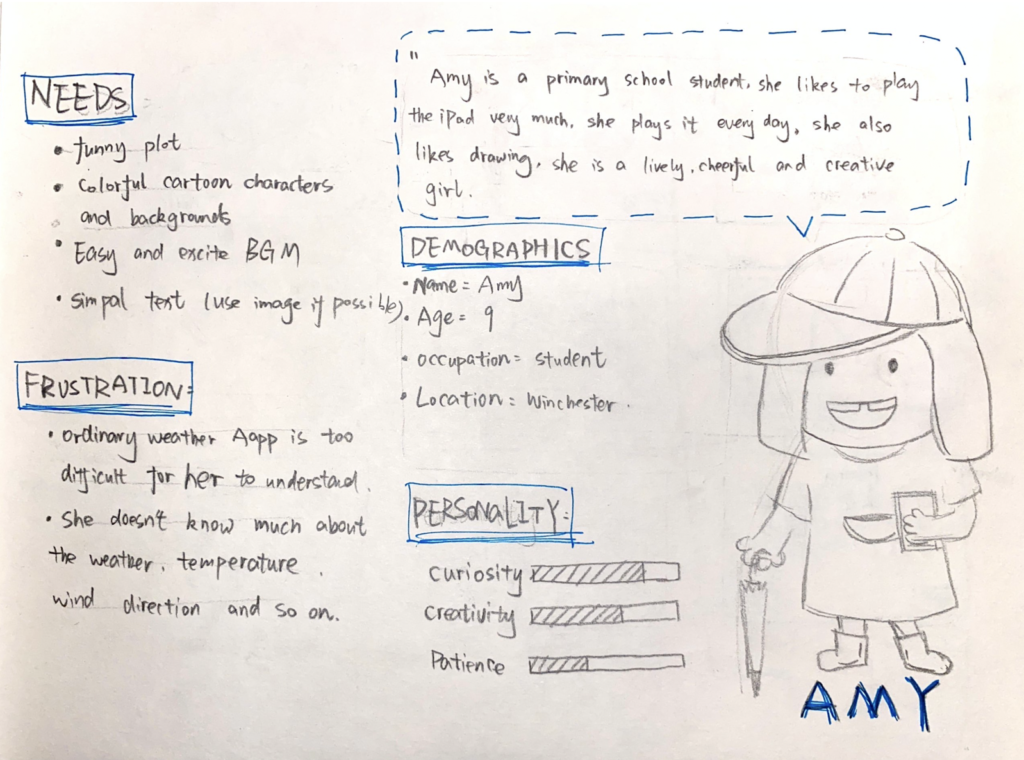 NEEDS
• funny plot
• Colorful cartoon characters
and backgrounds
• Easy and excite BGM
• simpal text (use image if possible)
FRUSTRATION:
• ordinary weather Aapp is too
difficult for her to understand.
• She doesn't know much about
the weather, temperature,
wind direction and so on.
"
Amy is a primary school student, she likes to play
the iPad very much, she plays it every day, she also
likes drawing, she is a lively, cheerful and creative
girl.
DEMOGRAPHICS
• Name = Amy
• Age = 9
• occupation = student
• Location = Winchester.
PERSONALITY:
Curiosity
Creativity
Patience
AMY